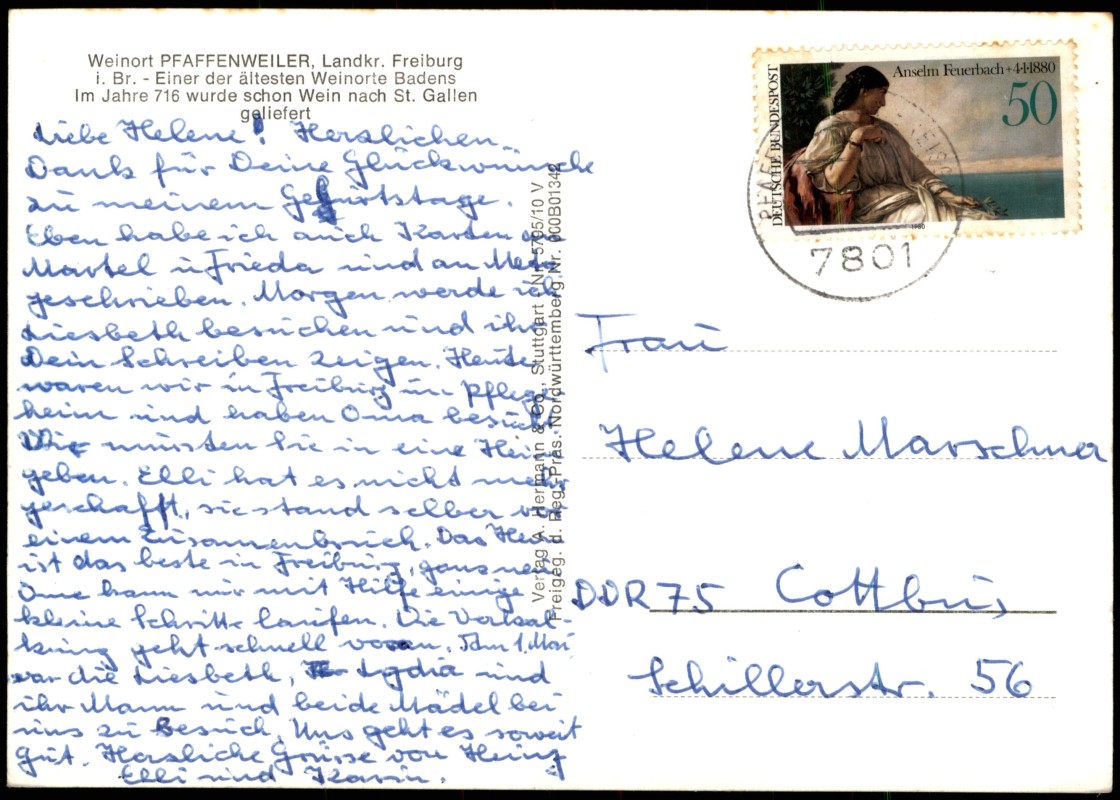 Weinort PFAFFENWEILER, Landkr. Freiburg
i. Br. - Einer der ältesten Weinorte Badens
Im Jahre 716 wurde schon Wein nach St. Gallen
geliefert
Liebe Helene! Herzlichen
Dank für Deine Glückwünsche
zu meinem Geburtstage.
Eben habe ich auch Karten an
Martel u Frieda und an
geschrieben. Morgen werde ich
Liesbeth besuchen und ihr
Dein Schreiben zeigen. Heute
waren wir in Freiburg im Pflege
heim und haben Oma besucht
Wir mussten Sie in eine Heim
geben. Elli hat es nicht mehr
geschafft, sie stand selber vor
einem Zusammenbruch. Das Heim
ist das beste in Freiburg, ganz neu
Oma kann nur mit Hilfe einige
kleine Schritte laufen. Die Verkal-
kung geht schnell voran. Am 1. Mai
war die Liesbeth, Lydia und
ihr Mann und beide Mädel bei
uns zu Besuch. Uns geht es soweit
gut. Herzliche Grüsse von Heinz
Elli und Karin.
Verlag A. Hermann & Co., Stuttgart - Nr. 5795/10 V
Freigeg. d. Reg.-Präs. Nordwürttemberg Nr. 000B01342
DEUTSCHE BUNDESPOST
Anselm Feuerbach + 4·1·1880
50
1980
7801
Frau
Helene Marschner
DDR 75 Cottbus,
Schillerstr. 56